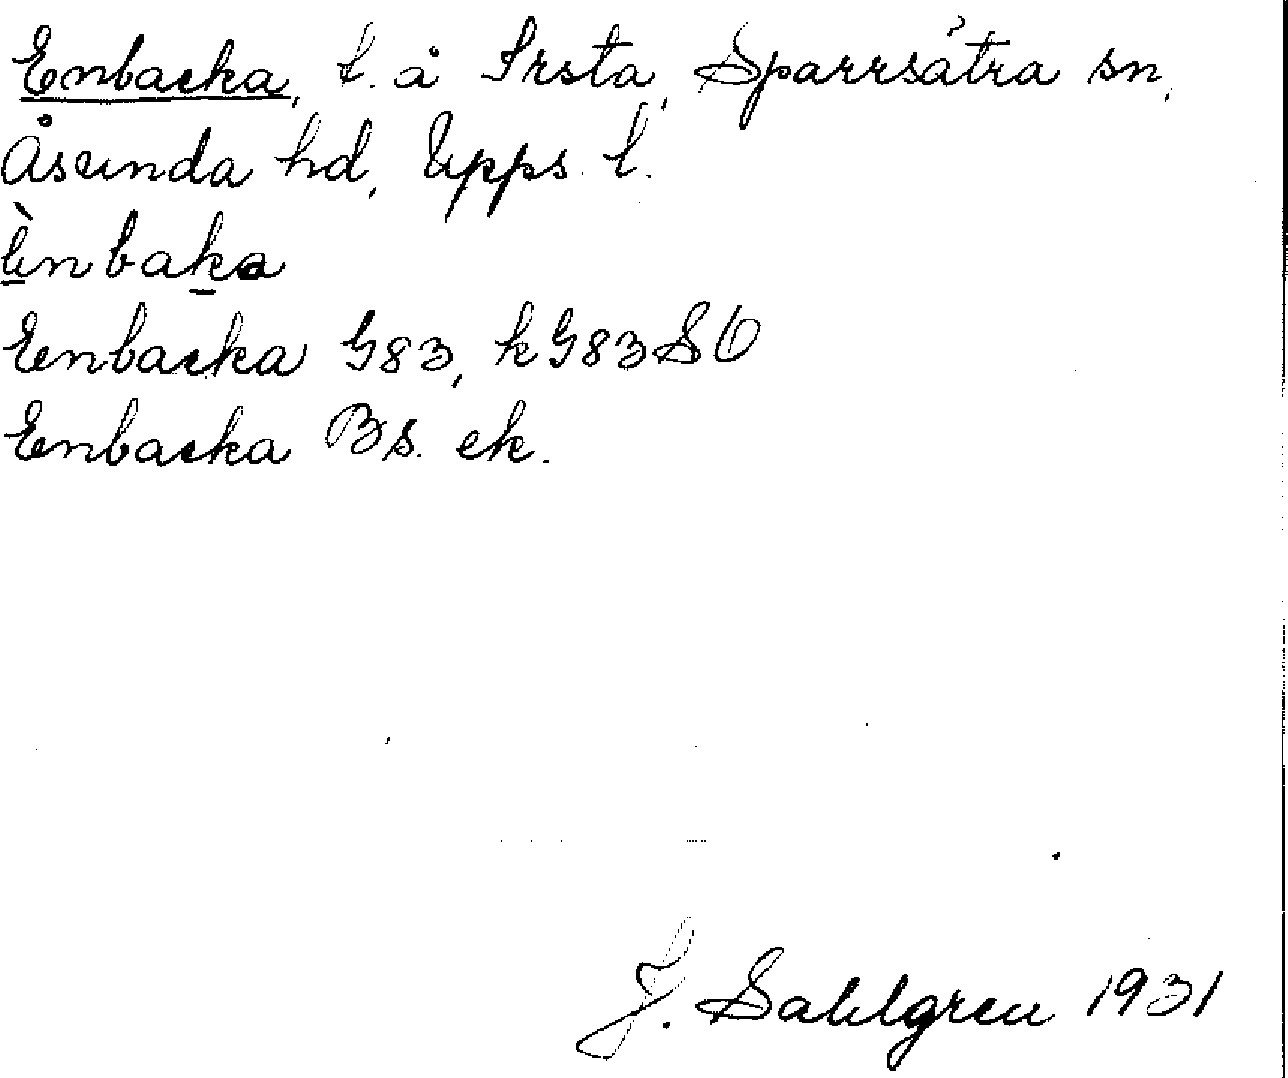 Enbacka, t. å Frsta, Sparrsåtra sn,
Åsunda hd, Upps. l.
ènbaka
Enbacka G83, kG83SO
Enbacka Bs. ek.
J. Sahlgren 1931